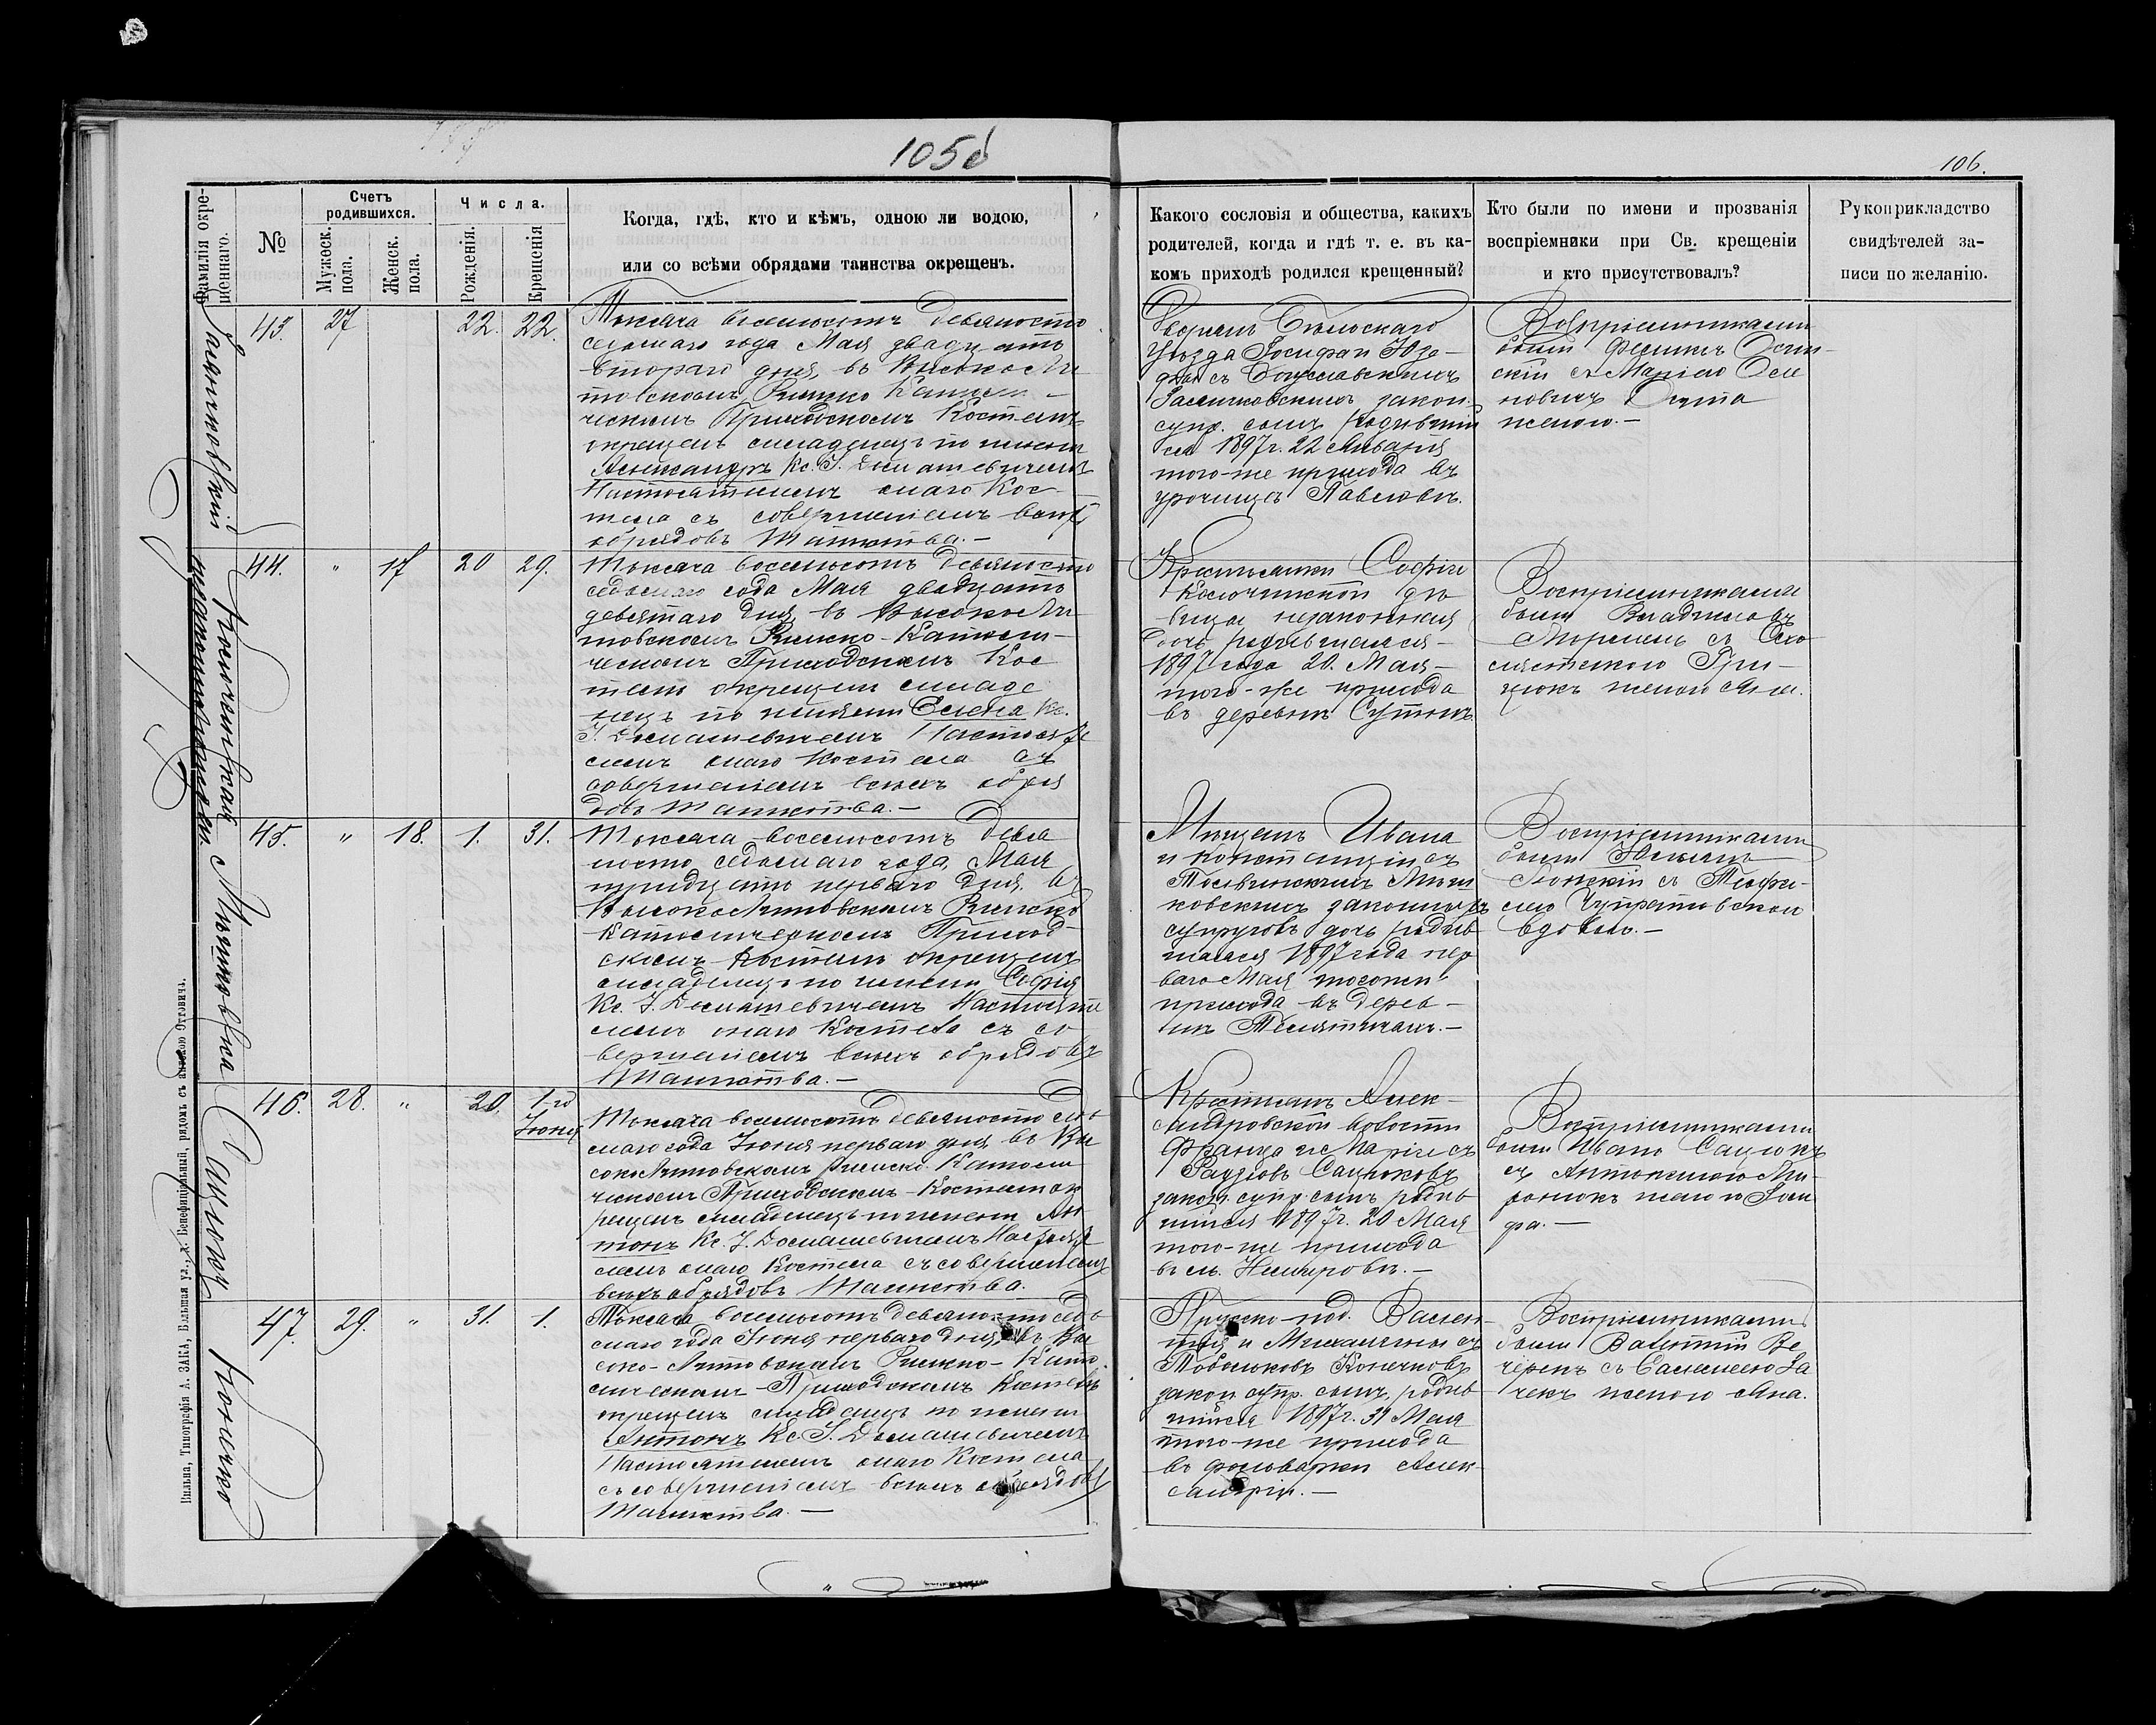 105б
106.
Фамилія окрещеннаго.
№
Счетъ родившихся.
Мужеск. пола.
Женск. пола.
Числа.
Рожденія.
Крещенія
Когда, гдѣ, кто и кѣмъ, одною ли водою,
или со всѣми обрядами таинства окрещенъ.
Какого сословія и общества, какихъ
родителей, когда и гдѣ т. е. въ ка-
комъ приходѣ родился крещенный?
Кто были по имени и прозванія
воспріемники при Св. крещеніи
и кто присутствовалъ?
Рукоприкладство
свидѣтелей за-
писи по желанію.
43. 27 22. 22.
Тысяча восемьсотъ девяносто
седьмаго года Мая двадцать
втораго дня, въ Высоко Ли
товскомъ Римско Католи-
ческомъ Приходскомъ Костелѣ
окрещенъ младенецъ по имени
Александръ Кс. І. Доматевичемъ
Настоятелемъ онаго Кос-
тела съ совершеніемъ всѣхъ
обрядовъ Таинства.-
Дворянъ Бѣльскаго
Уѣзда Іосифа и Юзе-
фы съ Богуславскихъ
закон.
супр. сынъ родившій
ся 1897 г. 22 Января
того-же прихода въ
урочищѣ Павловѣ.
Воспріемниками
были
скій съ Маріею
женою.-
44. " 17 20 29.
Тысяча восемьсотъ девяносто
седьмаго года Мая двадцать
девятаго дня, въ Высоко Ли
товскомъ Римско-Католи-
ческомъ Приходскомъ Кос
телѣ окрещенъ младе
нецъ по имени Елена Кс.
І. Доматевичемъ Настояте
лемъ онаго Костела съ
совершеніемъ всѣхъ обря
довъ Таинства.-
Крестьянки Софіи
дѣ
вицы незаконная
дочь родившаяся-
1897 года 20. Мая-
того-же прихода
въ деревнѣ
Воспріемниками
были Владиславъ
съ
женою
45. " 18. 1. 31.
Тысяча восемьсотъ девя
носто седьмаго года, Мая
тридцать перваго дня, въ
Высоко Литовскомъ Римско
Католическомъ Приход-
скомъ Костелѣ окрещенъ
младенецъ по имени Софія
Кс. І. Доматевичемъ Настояте
лемъ онаго Костела съ со
вершеніемъ всѣхъ обрядовъ
Таинства.-
Мѣщанъ Ивана
и Констанціи съ
законныхъ
супруговъ дочь родив
шаяся 1897 года пер
ваго Мая тогоже
прихода въ дерев-
нѣ
Воспріемниками
были
съ Теофи-
лею
вдовою.-
46. 28. " 20. 1-го Іюня
Тысяча восемьсотъ девяносто седь
маго года Іюня перваго дня въ Вы
соко Литовскомъ Римско-Католи
ческомъ Приходскомъ-Костелѣ ок
рещенъ младенецъ по имени Ан
тонъ Кс. І. Доматевичемъ Настояте
лемъ онаго Костела съ совершеніемъ
всѣхъ обрядовъ Таинства.
Крестьянъ Алек-
сандровской волости
Франца и Маріи съ
Сацюковъ
закон. супр. сынъ родив
шійся 1897 г. 20 Мая
того-же прихода
въ м. Немировѣ.-
Воспріемниками
были Иванъ Сацюкъ
съ Антониною Ми-
ронюкъ женою Іоси
фа.-
47. 29. " 31. 1.
Тысяча восемьсотъ девяносто седь
маго года Іюня перваго дня, въ Вы
соко-Литовскомъ Римско-Като
лическомъ Приходскомъ Костелѣ
окрещенъ младенецъ по имени
Антонъ Кс. І. Доматевичемъ
Настоятелемъ онаго Костела
съ совершеніемъ всѣхъ обрядовъ
Таинства.-
Прусско-под. Вален-
тія и Михалины съ
закон супр. сынъ, родив
шійся 1897 г. 31 Мая
того-же прихода
въ фольваркѣ Алек-
сандріи.-
Воспріемниками
были Валентій Ве
съ Саломеею
женою
Сацюкъ
Вильна, Типографія А. ЗАКА, Большая ул., д. Бенефиціальный, рядомъ съ аптекою Отговича.